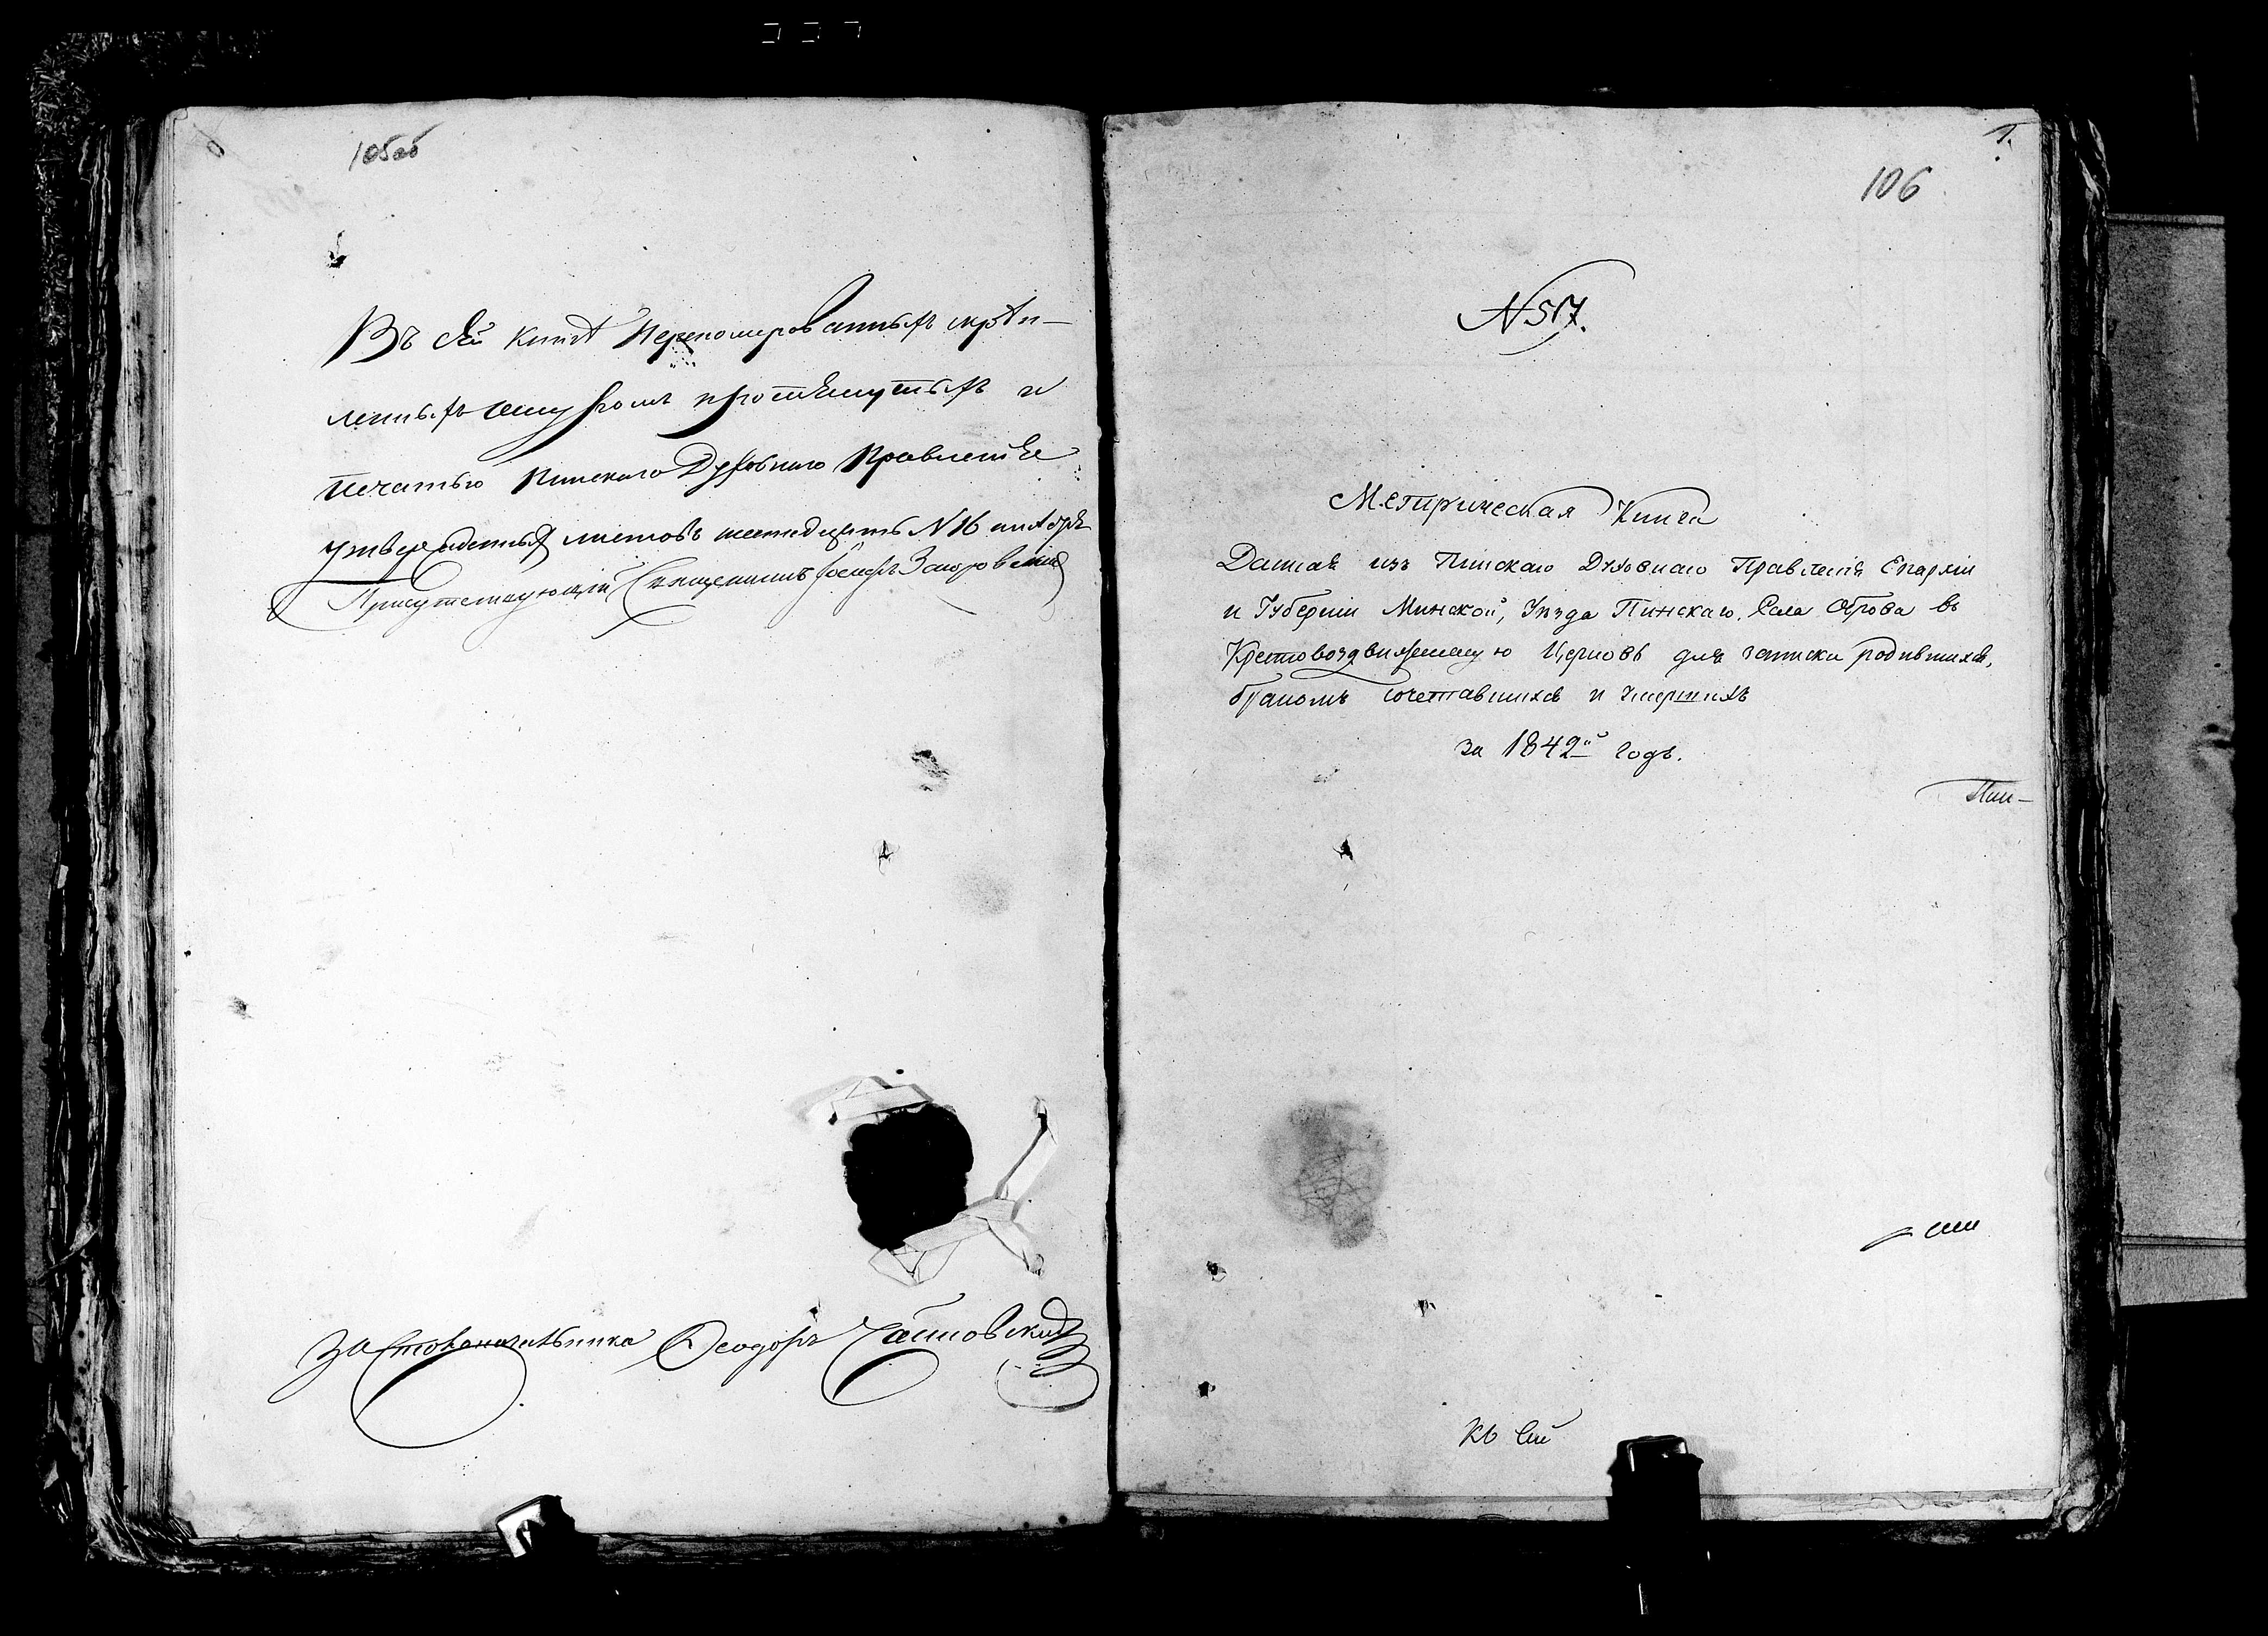 105об
Въ сей книгѣ перенумерованныхъ скрѣп-
ленныхъ шнуромъ протянутыхъ и
печатью Пинскаго Духовнаго Правленія
утвержденныхъ листовъ шестнадцать N 16
Присутствующій Священникъ Іосифъ
За Столоначальника Ѳеодоръ
1.
106
N 517.
Метрическая Книга
Данная изъ Пинскаго Духовнаго Правленія Епархіи
и Губерніи Минской, Уѣзда Пинскаго, Села Острова въ
Крестовоздвиженскую Церковь для записки родившихся,
бракомъ сочетавшихся и умершихъ
за 1842й годъ.
Пин-
Къ сей